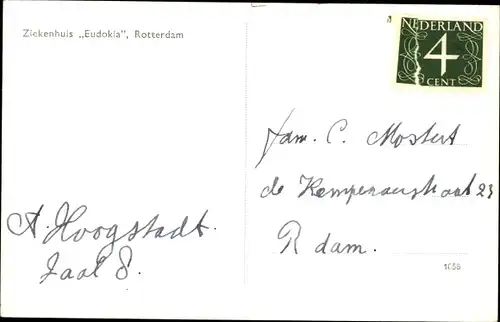 Ziekenhuis „Eudokia", Rotterdam
NEDERLAND
4
CENT
fam. C. Mostert
de Kempenaerstraat 23
R dam.
A. Hoogstadt.
Zaal 8.
1056